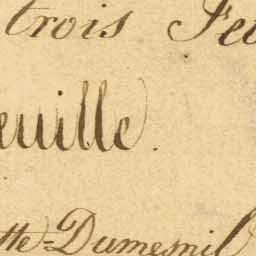 trois Feu
euille.
tte=Dumesnil